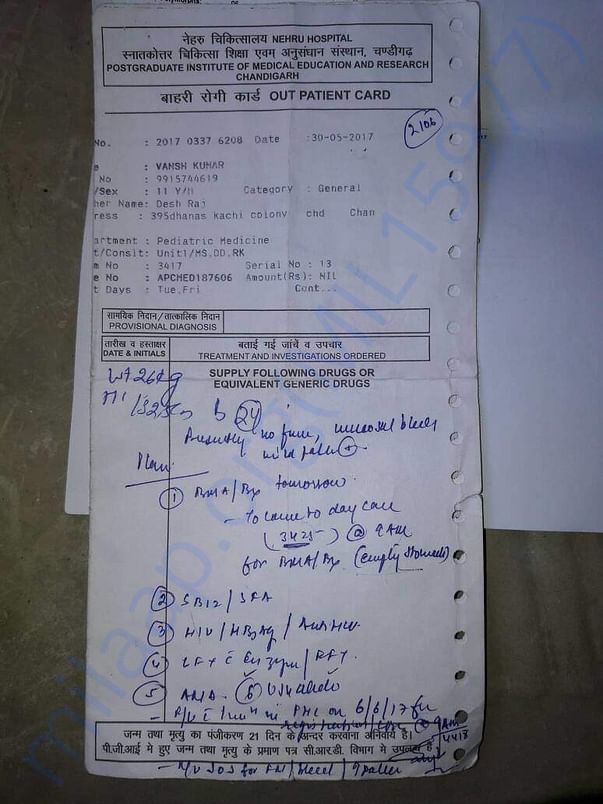 नेहरु चिकित्सालय NEHRU HOSPITAL
स्नातकोत्तर चिकित्सा शिक्षा एवम अनुसंधान संस्थान, चण्डीगढ़
POSTGRADUATE INSTITUTE OF MEDICAL EDUCATION AND RESEARCH
CHANDIGARH
बाहरी रोगी कार्ड OUT PATIENT CARD
2106
No. : 2017 0337 6208 Date :30-05-2017
e : VANSH KUMAR
No : 9915744619
/Sex : 11 Y/M Category : General
her Name: Desh Raj
ress : 395dhanas kachi colony chd Chan
artment : Pediatric Medicine
t/Conslt: Unit1/MS.DD.RK
m No : 3417 Serial No : 13
e No : APCMED187606 Amount(Rs): NIL
t Days : Tue,Fri Cont...
सामयिक निदान/तात्कालिक निदान
PROVISIONAL DIAGNOSIS
तारीख व हस्ताक्षर
DATE & INITIALS
बताई गई जांचें व उपचार
TREATMENT AND INVESTIGATIONS ORDERED
SUPPLY FOLLOWING DRUGS OR
EQUIVALENT GENERIC DRUGS
Wt 26kg
Ht 132cm
24
Presently no fever, mucosal bleeds
mild pallor +
Plan
1 BMA/Bx tomorrow
- To come to day care
(3425) @ 9AM
for BMA/Bx (empty stomach)
2 SB12/SFA
3 HIV/HBsAg/Anti HCV
4 LFT c Enzyme/RFT
5 ANA 6
on 6/6/17 for
@ 9AM
4418
जन्म तथा मृत्यु का पंजीकरण 21 दिन के अन्दर करवाना अनिवार्य है।
पी.जी.आई मे हुए जन्म तथा मृत्यु के प्रमाण पत्र सी.आर.डी. विभाग मे उपलब्ध है
- R/V SOS for FN/bleed/pallor
milaap.org (MIL 15977)